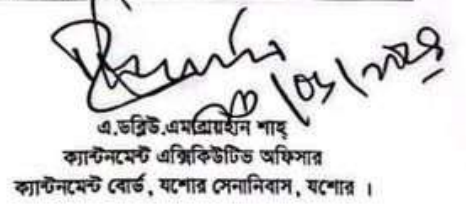 এ.ডব্লিউ.এম রায়হান শাহ্
ক্যান্টনমেন্ট এক্সিকিউটিভ অফিসার
ক্যান্টনমেন্ট বোর্ড, যশোর সেনানিবাস, যশোর ।